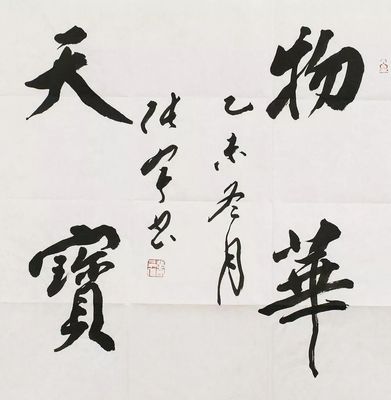 物華
天寶
乙未冬月
书